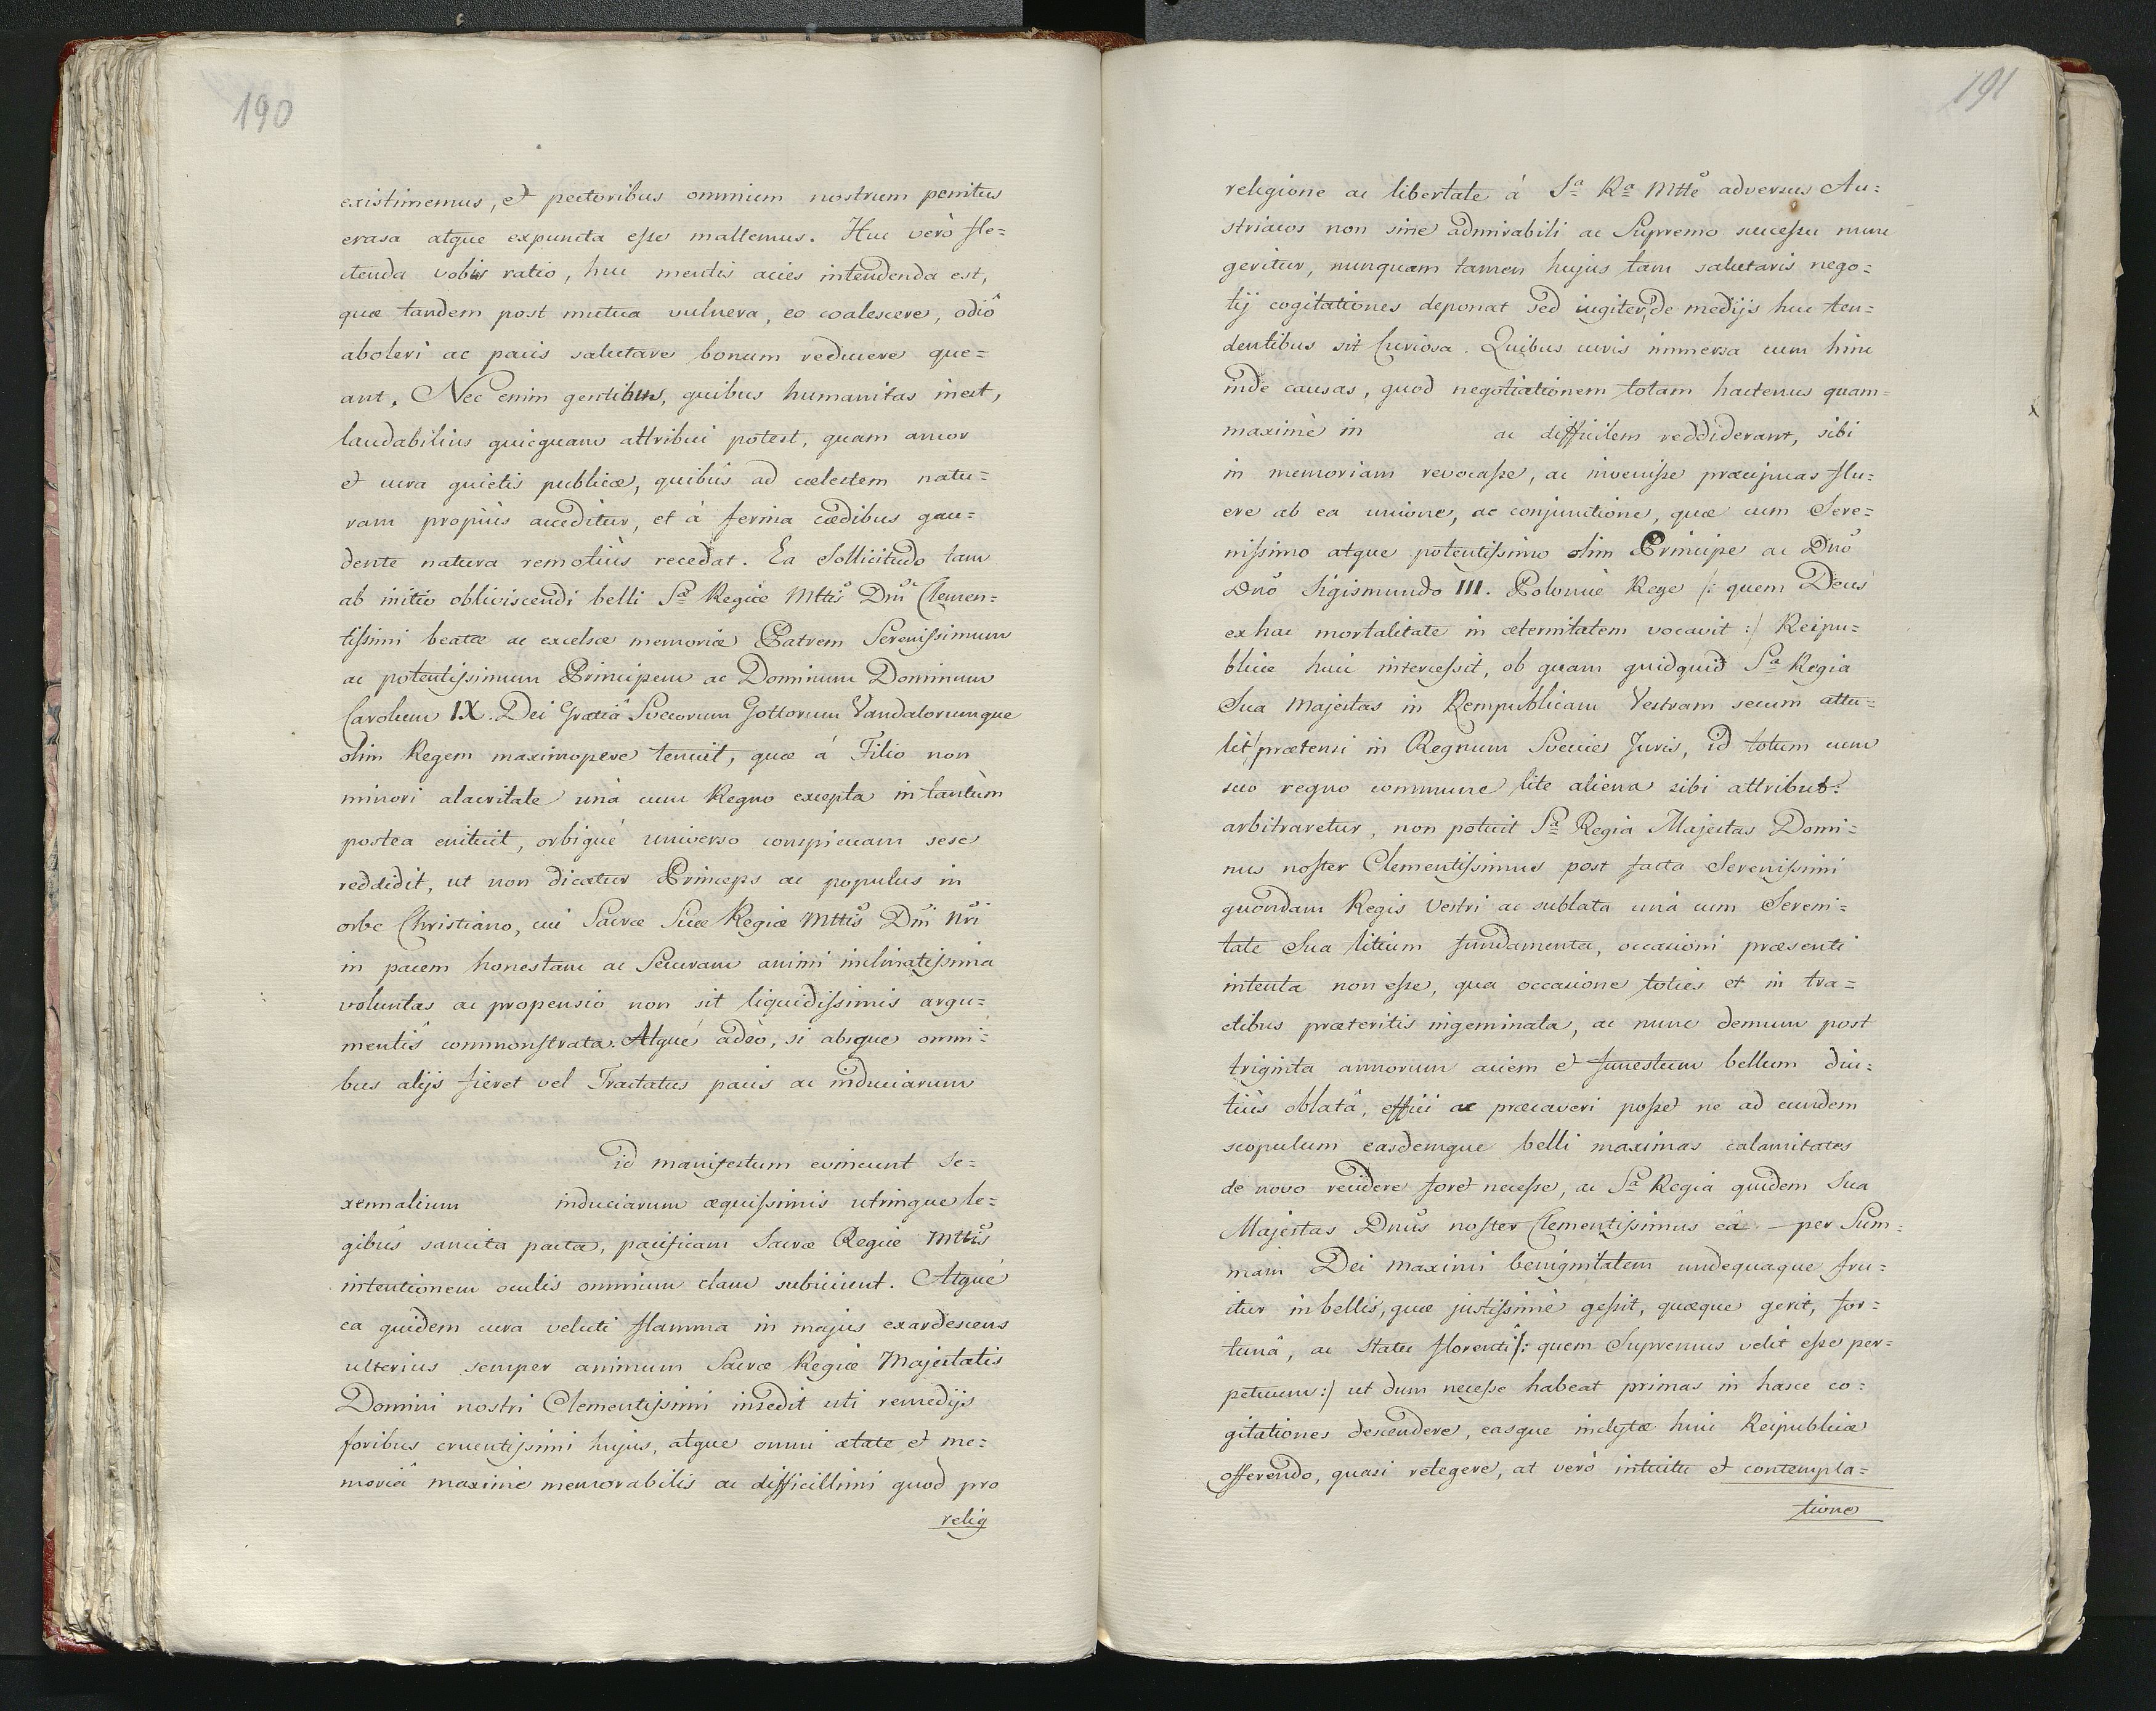 190
existimemus, et pectoribus omnium nostrum penitus
erasa atque expuncta esse mallemus. Huc verò fle=
ctenda vobis ratio, huc mentis acies intendenda est,
quæ tandem post mutua vulnera, eo coalescere, odiô
aboleri ac pacis salutare bonum reducere que=
ant. Nec enim gentibus, quibus humanitas inest,
laudabilius quicquam attribui potest, quam amor
et cura quietis publicæ, quibus ad cælestem natu=
ram propiùs acceditur, et à ferina cædibus gau=
dente natura remotiùs recedat. Ea Sollicitudo tam
ab initio obliviscendi belli Sæ Regiæ Mttis Dni Clemen=
tissimi beatæ ac excelsæ memoriæ Patrem Serenissimum
ac potentissimum Principem ac Dominum Dominum
Carolum IX. Dei Gratiâ Svecorum Gottorum Vandalorumque
olim Regem maximopere tenuit, quæ à Filio non
minori alacritate unà cum Regno excepta in tantùm
postea enituit, orbiquè universo conspicuam sese
reddidit, ut non dicatur Princeps ac populus in
orbe Christiano, cui Sacræ Suæ Regiæ Mttis Dni Nri
in pacem honestam ac Securam animi inclinatissima
voluntas ac propensio non sit liquidissimis argu=
mentis commonstrata. Atque adeò, si absque omni=
bus alijs fieret vel Tractatus pacis ac induciarum
id manifestum evincunt Se=
xennalium induciarum æquissimis utrinque le=
gibus sancita pacta, pacificam Sacræ Regiæ Mttis
intentionem oculis omnium clam subiiciunt. Atque
ea quidem cura veluti flamma in majus exardescens
ulterius semper animum Sacræ Regiæ Majestatis
Domini nostri Clementissimi insedit uti remedijs
foribus cruentissimi hujus, atque omni ætate et me=
moriâ maxime memorabilis ac difficillimi quod pro
relig
191
religione ac libertate à Sa Ra Mtte adversus Au=
striacos non sine admirabili ac Supremo successu nunc
geritur, nunquam tamen hujus tam salutaris nego=
tij cogitationes deponat sed iugiter, de medijs huc ten=
dentibus sit Curiosa. Quibus curis immersa cum hinc
inde causas, quod negotiationem totam hactenus quam=
maximè in ac difficilem reddiderant, sibi
in memoriam revocasse, ac invenisse præcipuas flu=
ere ab ea unione, ac conjunctione, quæ cum Sere=
nissimo atque potentissimo olim Principe ac Dno
Dno Sigismundo III. Poloniæ Rege /: quem Deus
ex hac mortalitate in æternitatem vocavit :/ Reipu=
blicæ huic intercessit, ob quam quidquid Sa Regia
Sua Majestas in Rempublicam Vestram secum attu=
lit prætensi in Regnum Sveciæs Juris, id totum cum
suo regno commune lite aliena sibi attribut:
arbitraretur, non potuit Sa Regia Majestas Domi=
nus noster Clementissimus post facta Serenissimi
quondam Regis Vestri ac sublata unà cum Sereni=
tate Sua litium fundamenta, occasioni præsenti
intenta non esse, qua occasione toties et in tra=
ctibus præteritis ingeminata, ac nunc demum post
triginta annorum aciem et funestum bellum diu=
tiùs oblatâ, effici ac præcaveri posse ne ad eundem
scopulum easdemque belli maximas calamitates
de novo recidere fore necesse, ac Sa Regia quidem Sua
Majestas Dnus noster Clementissimus eâ – per Sum=
mam Dei maximi benignitatem undequaque fru=
itur in bellis, quæ justissimè gessit, quæque gerit, for=
tunâ, ac Statu florenti /: quem Supremus velit esse per=
petuum :/ ut dum necesse habeat primas in hasce co=
gitationes descendere, easque inclytæ huic Reipublicæ
offerendo, quasi relegere, at verò intuitu et contempla=
tione